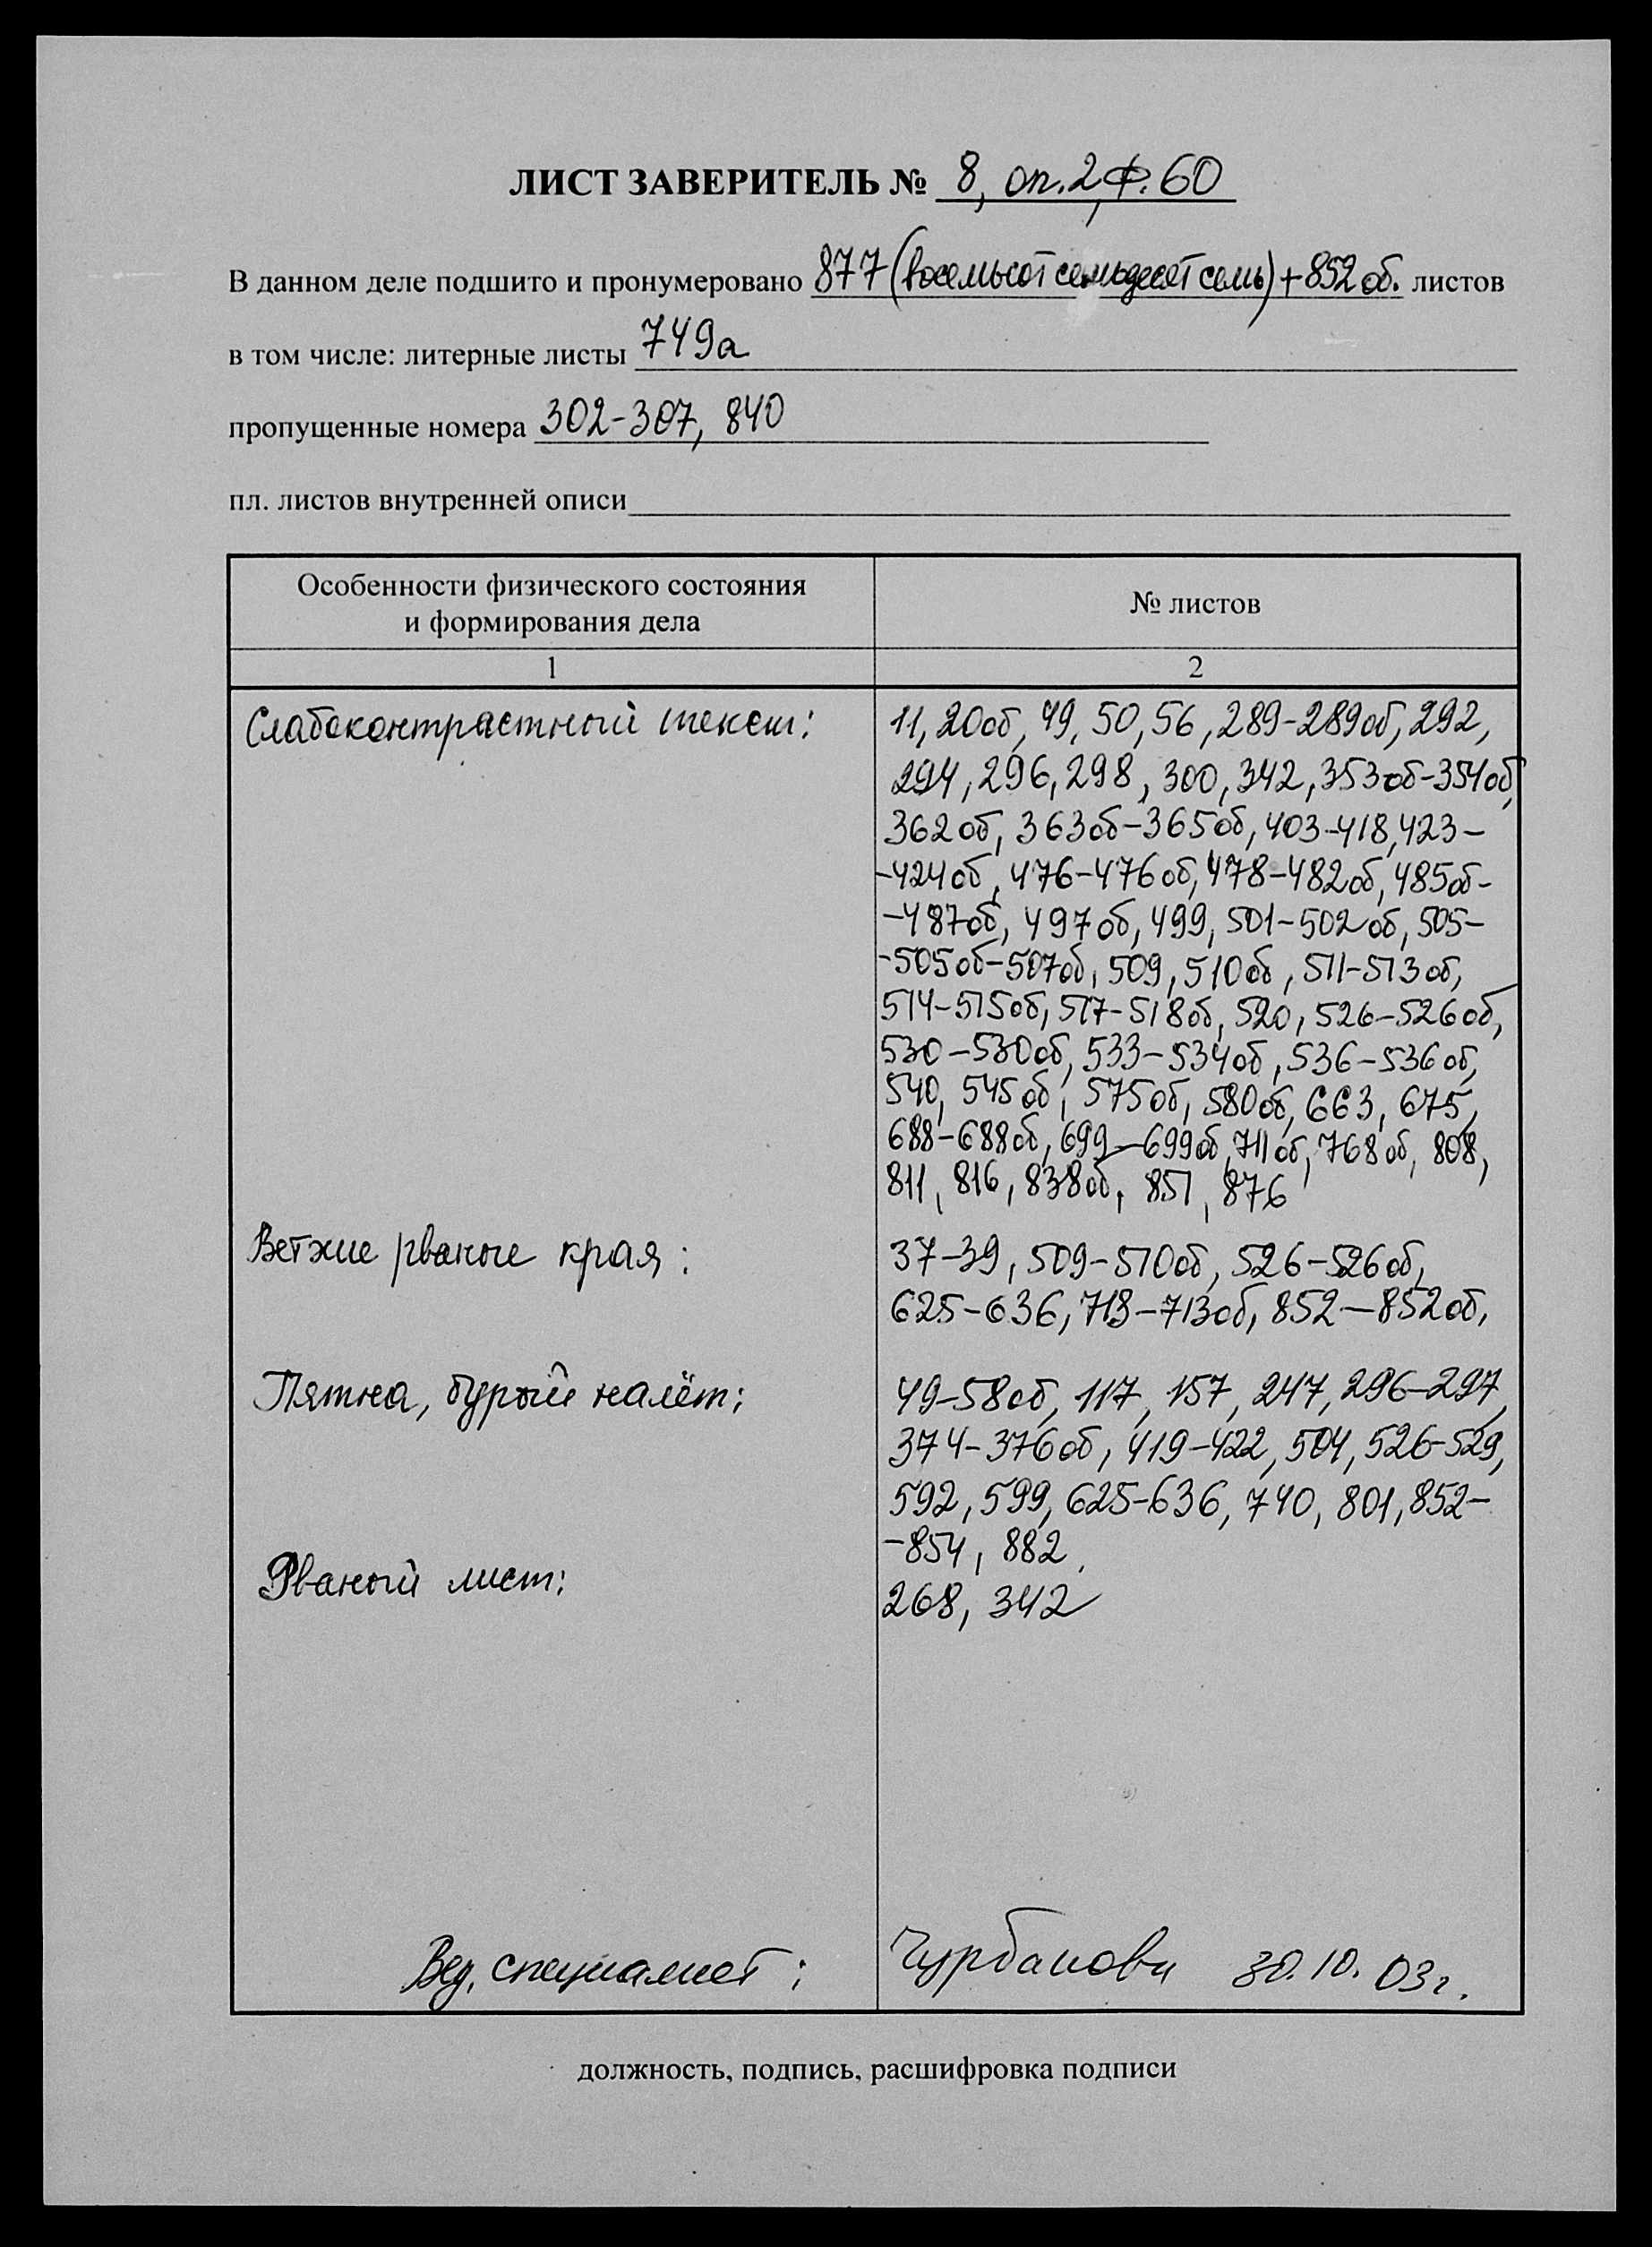 ЛИСТ ЗАВЕРИТЕЛЬ № 8, оп.2, ф.60
В данном деле подшито и пронумеровано 877 (восемьсот семьдесят семь) + 852 об. листов
в том числе: литерные листы 749а
пропущенные номера 302-307, 840
пл. листов внутренней описи
Особенности физического состояния
и формирования дела
№ листов
1 2
Слабоконтрастный текст: 11, 20об, 49, 50, 56, 289-289об, 292,
294, 296, 298, 300, 342, 353об-354об,
362об, 363об-365об, 403-418, 423-
-424об, 476-476об, 478-482об, 485об-
-487об, 497об, 499, 501-502об, 505-
-505об-507об, 509, 510об, 511-513об,
514-515об, 517-518об, 520, 526-526об,
530-530об, 533-534об, 536-536об,
540, 545об, 575об, 580об, 663, 675,
688-688об, 699-699об, 711об, 768об, 808,
811, 816, 838об, 851, 876
Ветхие рваные края: 37-39, 509-510об, 526-526об,
625-636, 713-713об, 852-852об,
Пятна, бурый налёт: 49-58об, 117, 157, 247, 296-297,
374-376об, 419-422, 504, 526-529,
592, 599, 625-636, 740, 801, 852-
-854, 882.
Рваный лист: 268, 342
Вед. специалист: Чурбанова 30.10.03г.
должность, подпись, расшифровка подписи